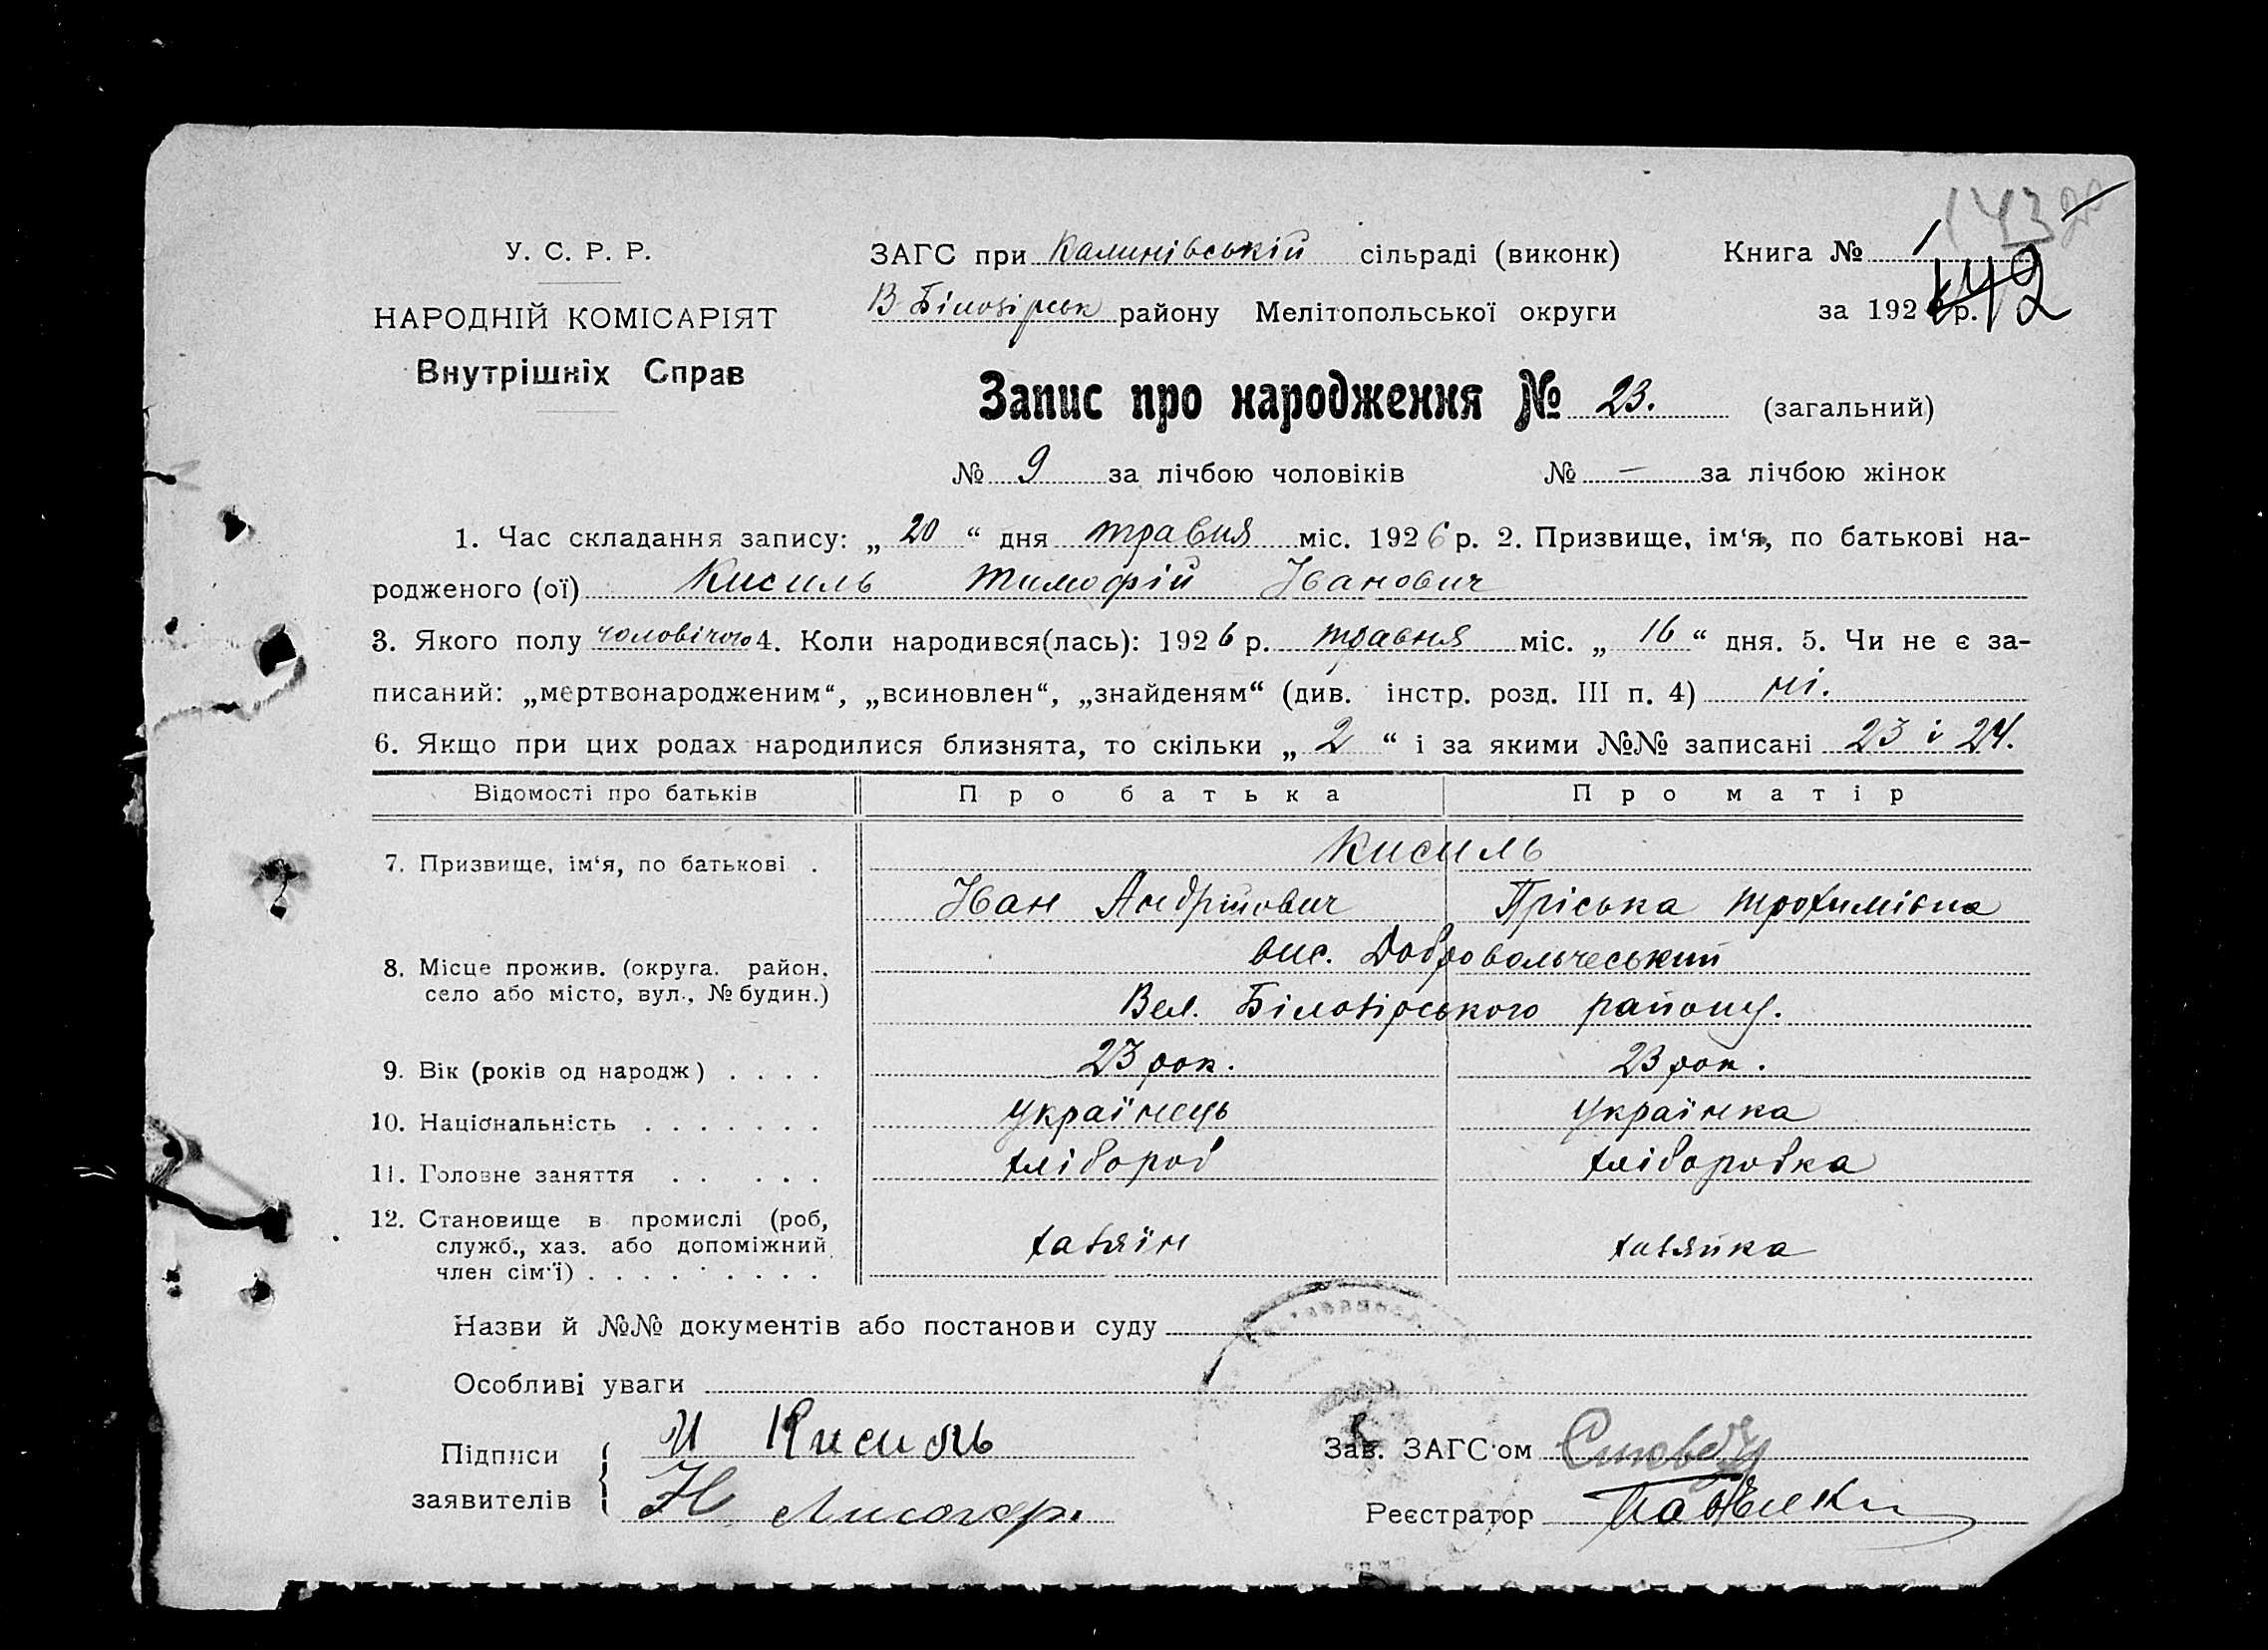 143
У. С. Р. Р.
НАРОДНІЙ КОМІСАРІЯТ
Внутрішніх Справ
ЗАГС при Калинівській сільраді (виконк)
В-Білозірськ району Мелітопольської округи
Книга № 1
142
за 192 р.
Запис про народження № 23. (загальний)
№ 9 за лічбою чоловіків № — за лічбою жінок
1. Час складання запису: „ 20 “ дня травня міс. 1926 р. 2. Призвище, ім‘я, по батькові на-
родженого (ої) Кисиль Тимофій Іванович
3. Якого полу чоловічого 4. Коли народився(лась): 1926 р. травня міс. „ 16 “ дня. 5. Чи не є за-
писаний: „мертвонародженим“, „всиновлен“, „знайденям“ (див. інстр. розд. III п. 4) ні.
6. Якщо при цих родах народилися близнята, то скільки „ 2 “ і за якими №№ записані 23 і 24.
Відомості про батьків Про батька Про матір
7. Призвище, ім‘я, по батькові . Кисиль
Іван Андрійович Пріська Трохимівна
8. Місце прожив. (округа. район, вис. Добровольчеський
село або місто, вул., № будин.) Вел. Білозірського району.
9. Вік (років од народж) . . . . 23 рок. 23 рок.
10. Національність . . . . . . . українець українка
11. Головне заняття . . . . . хлібороб хліборобка
12. Становище в промислі (роб,
служб., хаз. або допоміжний хазяїн хазяйка
член сім‘ї) . . . . . . . . .
Назви й №№ документів або постанови суду
Особливі уваги
Підписи
заявителів
И Кисиль
Н Лисогор.
Зав. ЗАГС‘ом
Реєстратор